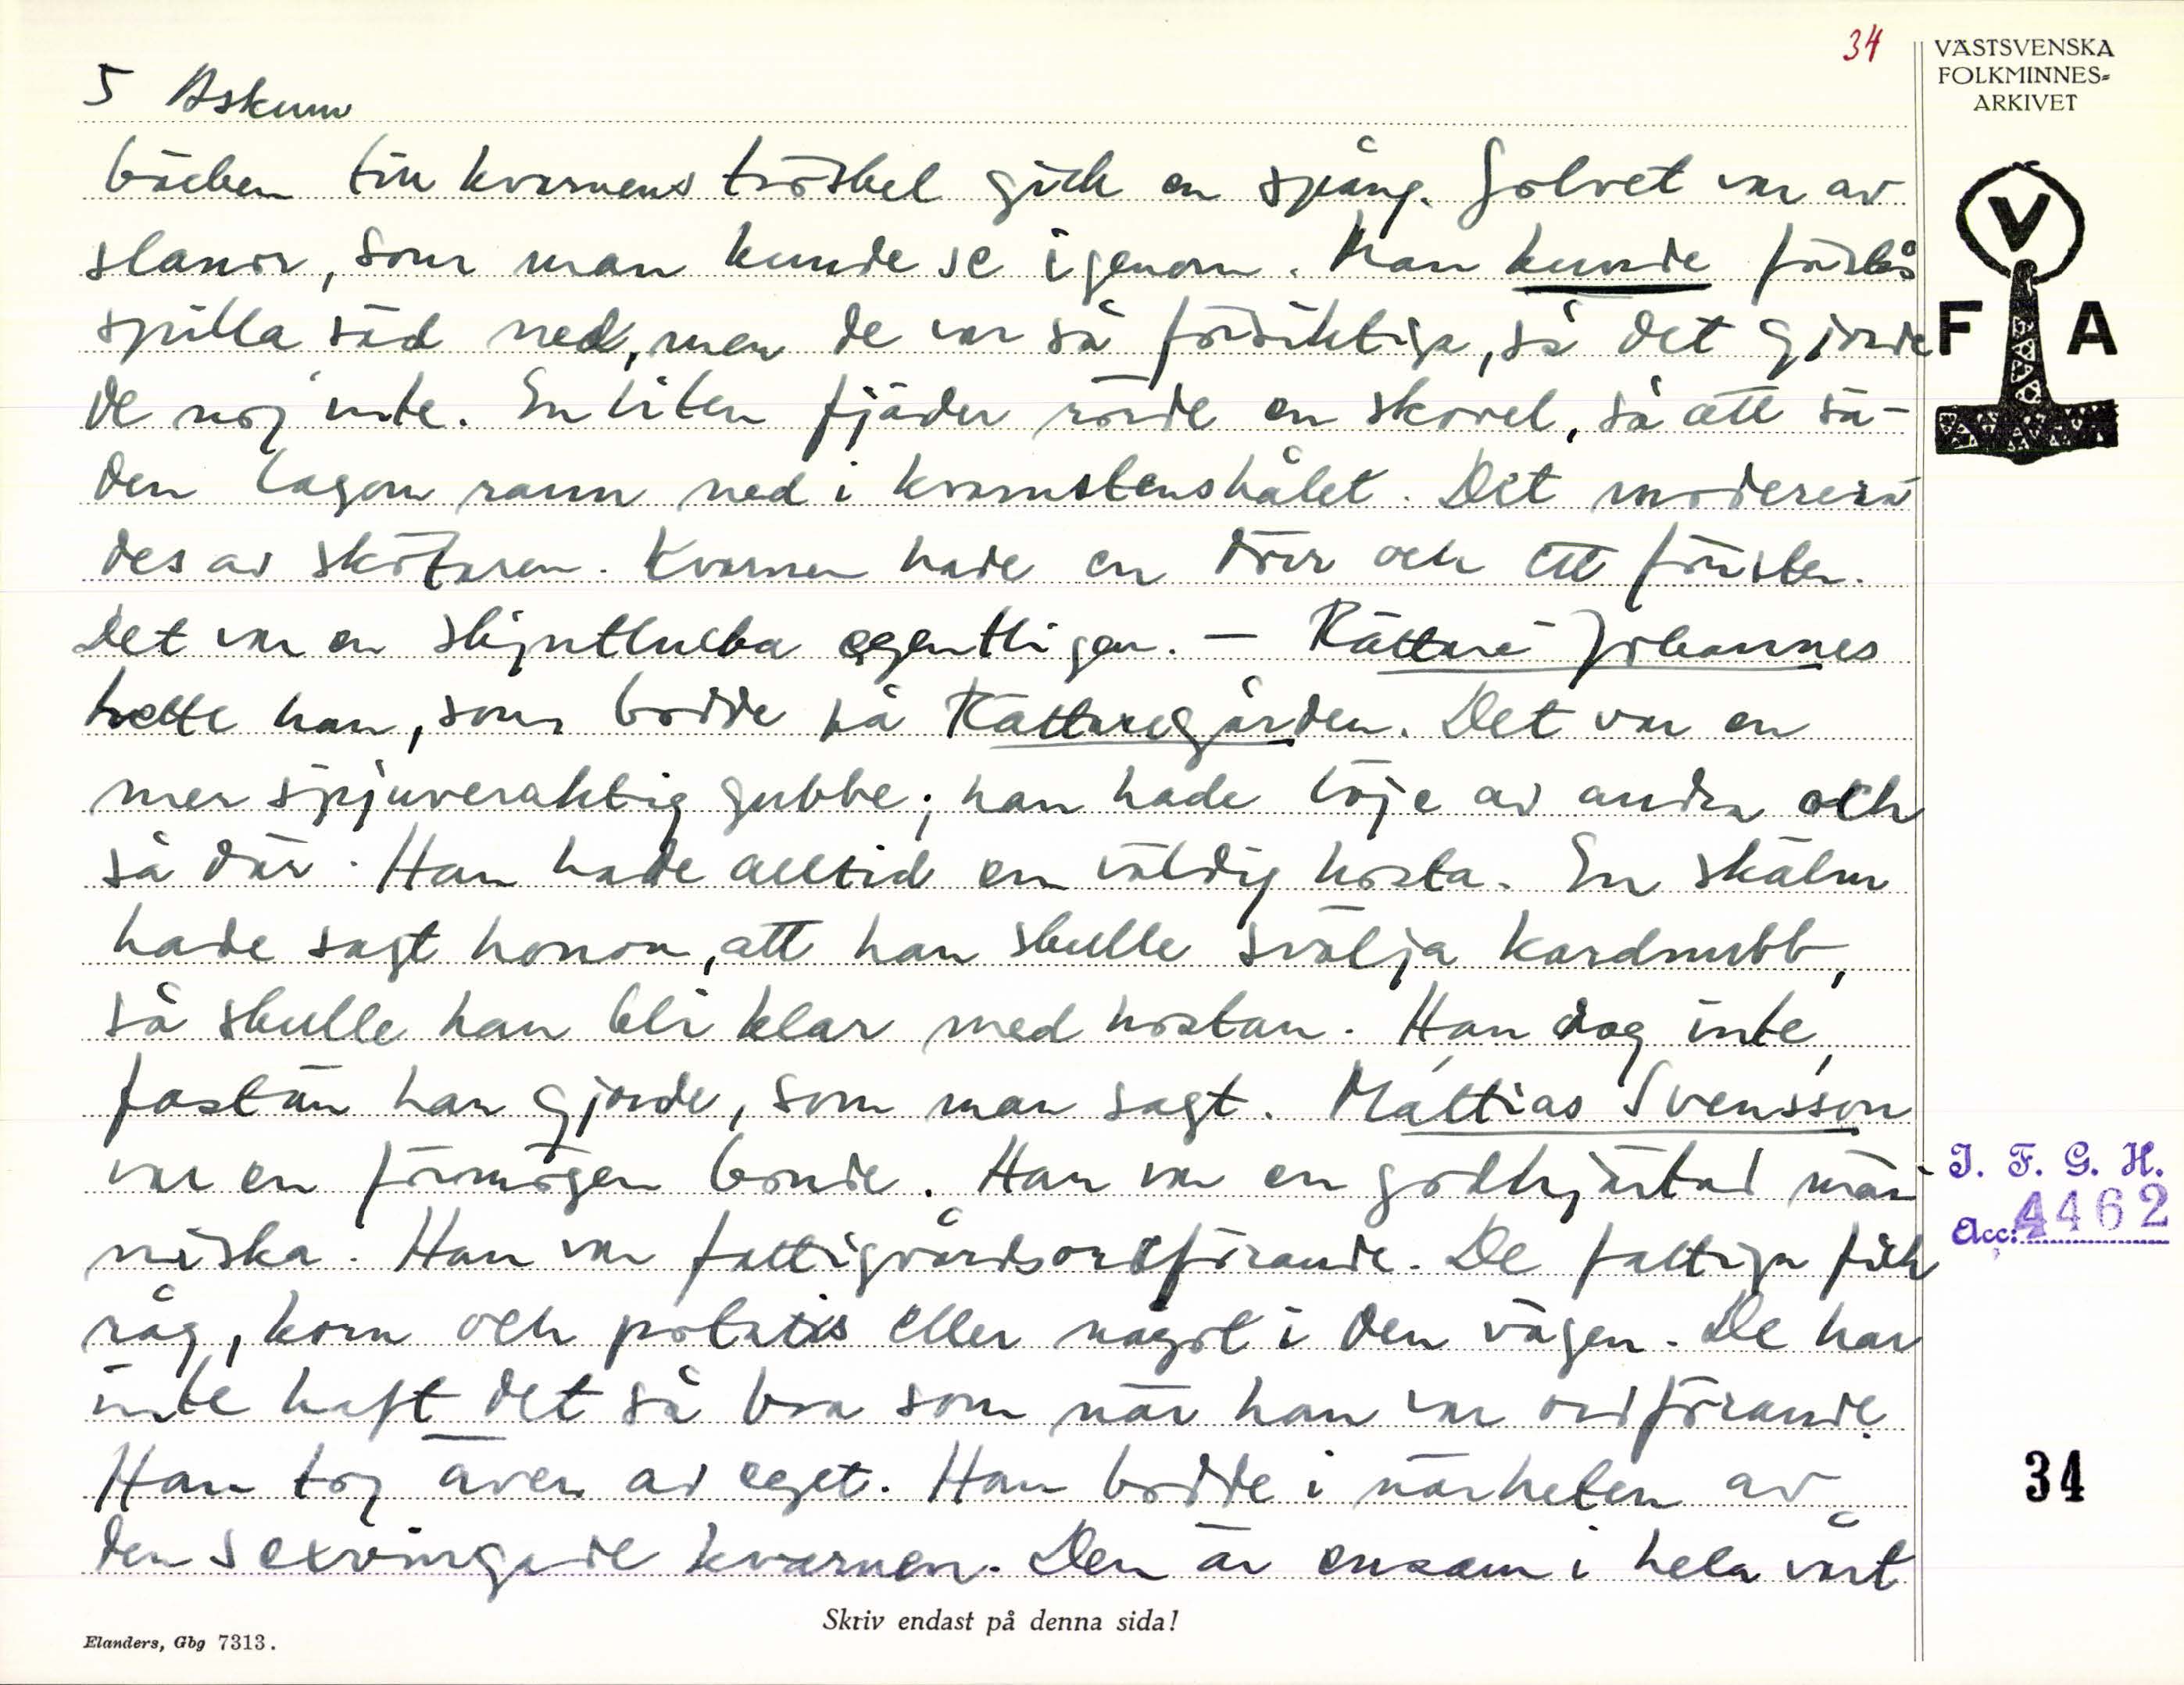 34
VÄSTSVENSKA
FOLKMINNES-
ARKIVET
5 Askum
bäcken till kvarnens tröskel gick en spång. Golvet var av
slanor, som man kunde se igenom. Man kunde förstås
spilla säd ned, men de var så försiktiga, så det gjorde
de nog inte. En liten fjäder rörde en skovel, så att sä-
den lagom rann ned i kvarnstenshålet. Det moderera
des av skötaren. Kvarnen hade en dörr och ett fönster.
Det var en skjutlucka egentligen. - Rättare Johannes
hette han, som bodde på Rättaregården. Det var en
mer spjuveraktig gubbe; han hade löje av andra och
så där. Han hade alltid en väldig hosta. En skälm
hade sagt honom, att han skulle svälja kardnubb,
så skulle han bli klar med hostan. Han dog inte,
fastän han gjorde, som man sagt. Mattias Svensson
var en förmögen bonde. Han var en godhjärtad män
niska. Han var fattigvårdsordförande. De fattiga fick
råg, korn och potatis eller något i den vägen. De har
inte haft det så bra som när han var ordförande.
Han tog även av eget. Han bodde i närheten av
den sexvingade kvarnen. Den är ensam i hela vårt
V
F A
I. F. G. H.
Acc: 4462
34
Skriv endast på denna sida!
Elanders, Gbg 7313.